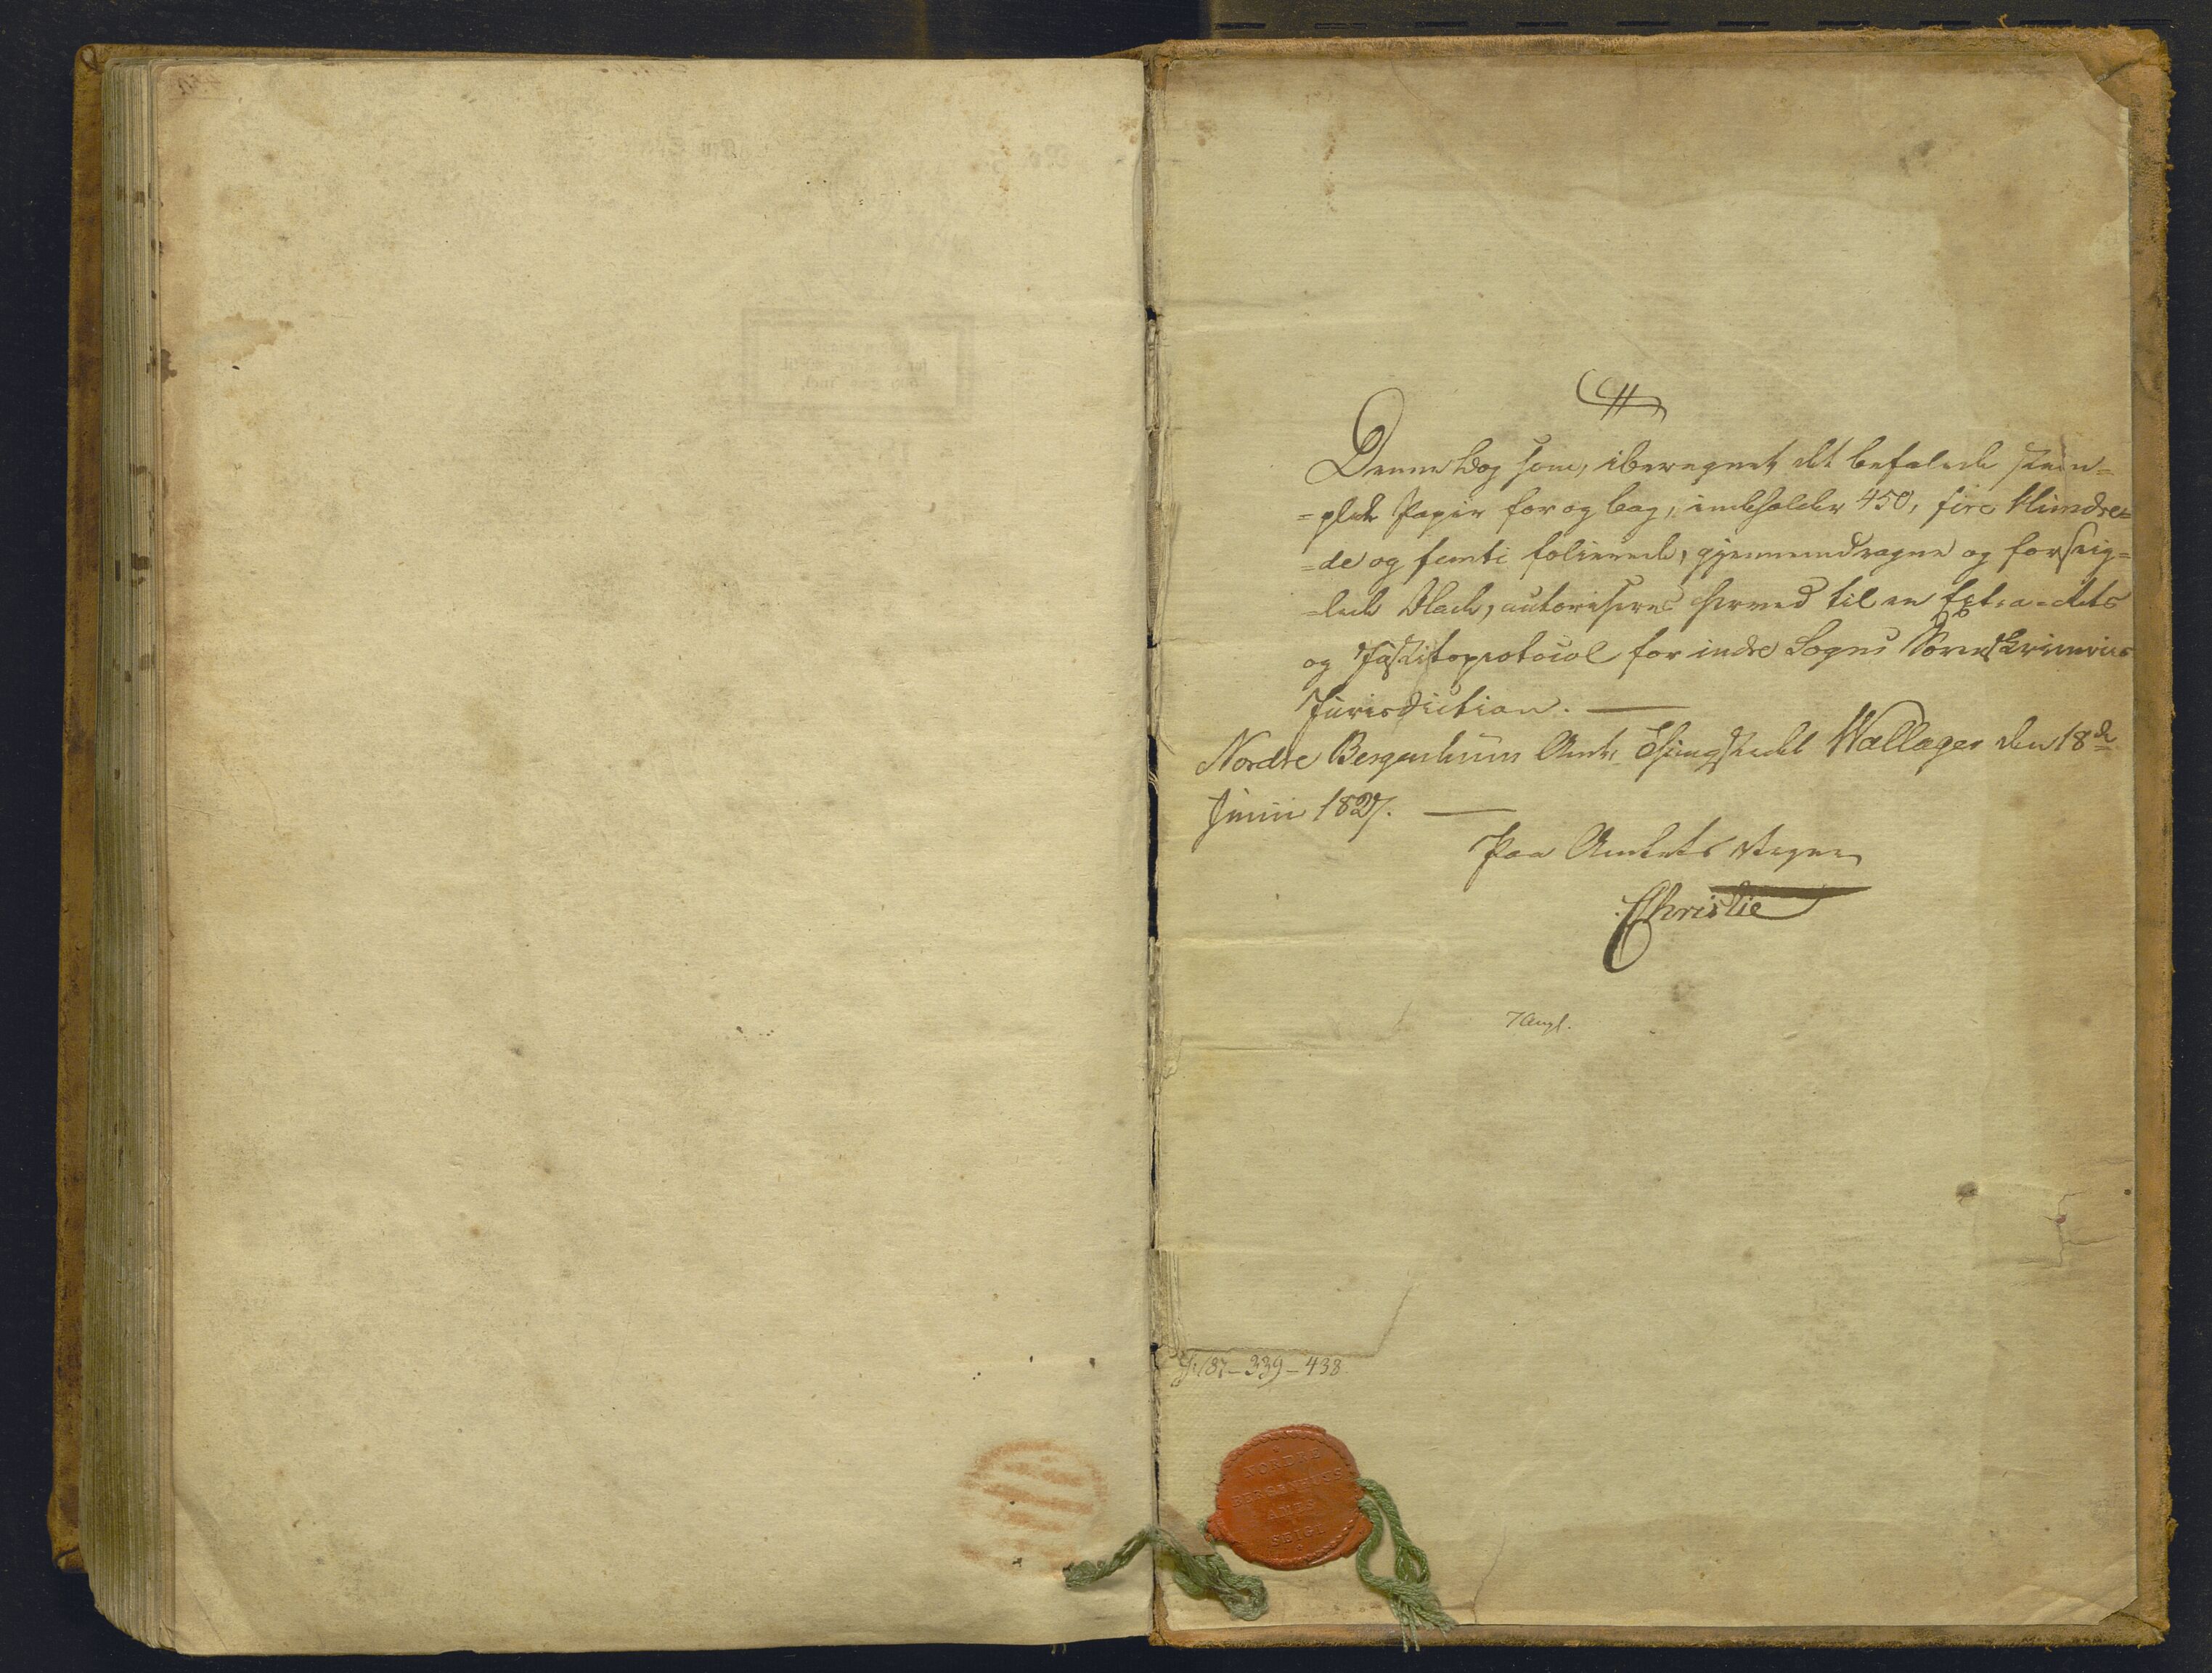 Denne Bog som, iberegnet det befalede stem-
=plede Papir for og bag, indeholder 450, fire Hundre=
=de og femti folierede, gjennemdragne og forseig=
=lede Blade, autoriseres herved til en Extra-Rets
og Justitsprotocol for indre Sogns Sorenskriveries
Jurisdiction. —
Nordre Bergenhuus Amt, Thingstedet Wallager den 18de
Junii 1827. —
Paa Amtets Vegne
Christie
7 Augl.
187-339-438
NORDRE
BERGENHUSS
AMTS
SEIGL